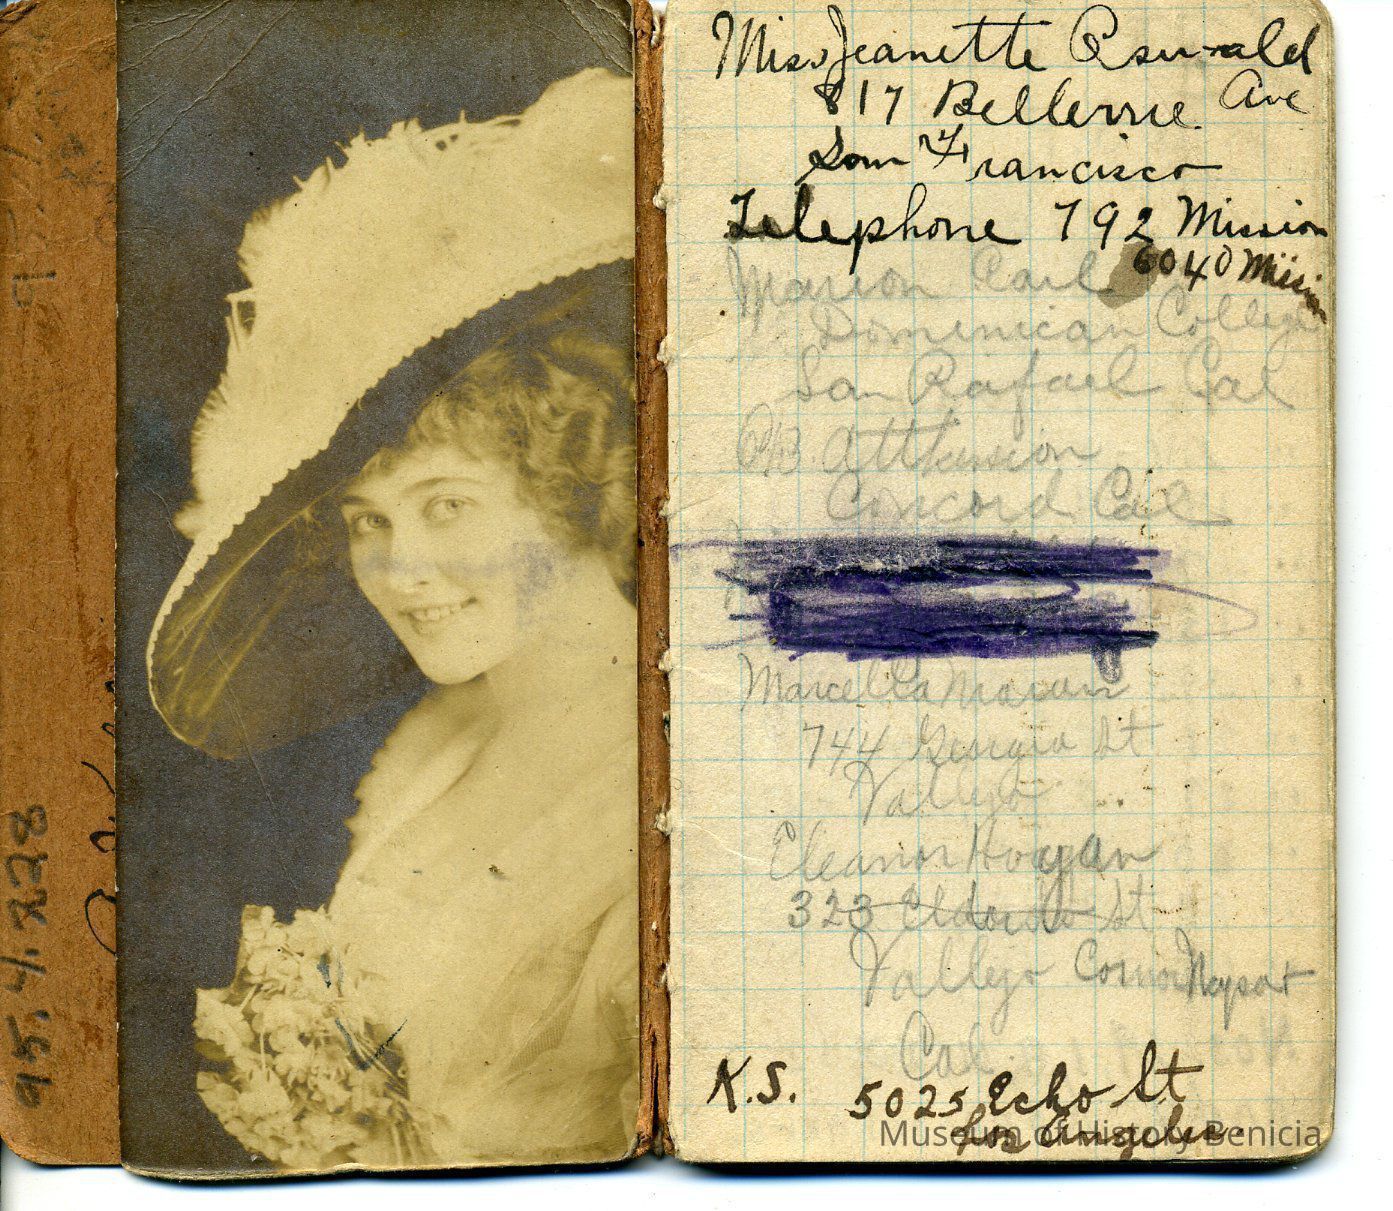 95.4.228
Miss Jeanette Oswald
817 Bellevue Ave
San Francisco
Telephone 792 Mission
6040 Mission
Marion Carl
Dominican College
San Rafael Cal
Concord Cal
Marcella
744 Georgia St
Vallejo
Eleanor Hogan
323 Eldorado St
Vallejo
Cal
K.S. 5025 Echo St
Los Angeles.
Museum of History Benicia